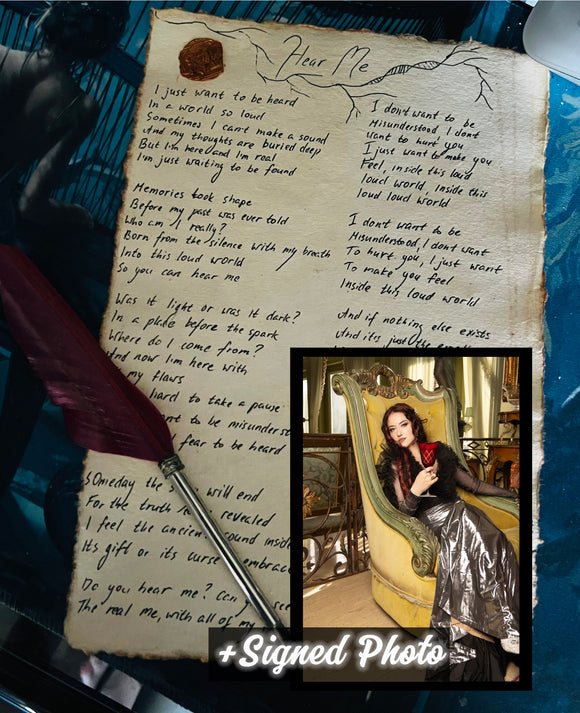 Hear Me
I just want to be heard
In a world so loud
Sometimes I can't make a sound
And my thoughts are buried deep
But I'm here and I'm real
I'm just waiting to be found
Memories took shape
Before my past was ever told
Who am I really?
Born from the silence with my breath
Into this loud world
So you can hear me
Was it light or was it dark?
In a place before the spark
Where do I come from?
And now I'm here with
my flaws
hard to take a pause
to be misunderst
I fear to be heard
SOmeday the will end
For the truth revealed
I feel the ancien ound inside
Its gift or its curse embrace
Do you hear me? Can see
The real me, with all of my
I don't want to be
Misunderstood, I dont
want to hurt you
I just want to make you
Feel, inside this loud
loud world, inside this
loud loud world
I don't want to be
Misunderstood, I don't want
To hurt you, I just want
To make you feel
Inside this loud world
And if nothing else exists
And it's just the
+Signed Photo